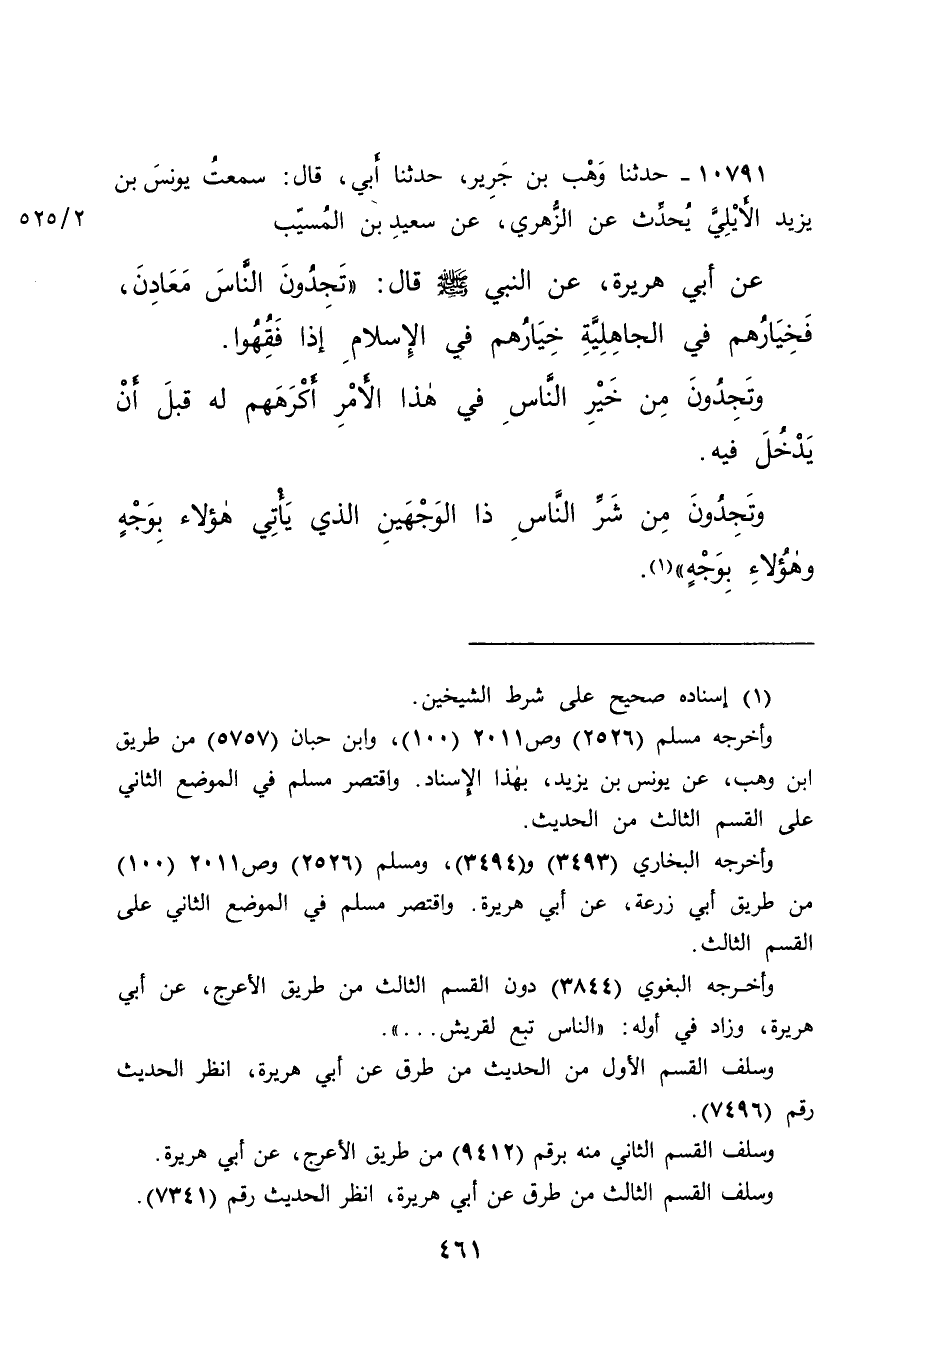 ١٠٧٩١ - حدثنا وَهْب بن جَرِير، حدثنا أَبي، قال: سمعتُ يونسَ بن
يزيد الأَيْلِيَّ يُحدِّث عن الزُّهري، عن سعيدِ بن المُسيّب
٥٢٥/٢
عن أبي هريرة، عن النبي ﷺ قال: «تَجِدُونَ النَّاسَ مَعَادِنَ،
فَخِيَارُهم في الجاهِلِيَّةِ خِيَارُهم في الإِسلامِ إذا فَقُهُوا.
وتَجِدُونَ مِن خَيْرِ النَّاسِ في هٰذا الأَمْرِ أَكْرَهَهم له قبلَ أَنْ
يَدْخُلَ فيه.
وتَجِدُونَ مِن شَرِّ النَّاسِ ذا الوَجْهَينِ الذي يَأْتِي هٰؤلاء بِوَجْهٍ
وهٰؤُلاءِ بِوَجْهٍ»(١).
(١) إسناده صحيح على شرط الشيخين.
وأخرجه مسلم (٢٥٢٦) وص٢٠١١ (١٠٠)، وابن حبان (٥٧٥٧) من طريق
ابن وهب، عن يونس بن يزيد، بهٰذا الإسناد. واقتصر مسلم في الموضع الثاني
على القسم الثالث من الحديث.
وأخرجه البخاري (٣٤٩٣) و(٣٤٩٤)، ومسلم (٢٥٢٦) وص٢٠١١ (١٠٠)
من طريق أبي زرعة، عن أبي هريرة. واقتصر مسلم في الموضع الثاني على
القسم الثالث.
وأخرجه البغوي (٣٨٤٤) دون القسم الثالث من طريق الأعرج، عن أبي
هريرة، وزاد في أوله: «الناس تبع لقريش...».
وسلف القسم الأول من الحديث من طرق عن أبي هريرة، انظر الحديث
رقم (٧٤٩٦).
وسلف القسم الثاني منه برقم (٩٤١٢) من طريق الأعرج، عن أبي هريرة.
وسلف القسم الثالث من طرق عن أبي هريرة، انظر الحديث رقم (٧٣٤١).
٤٦١